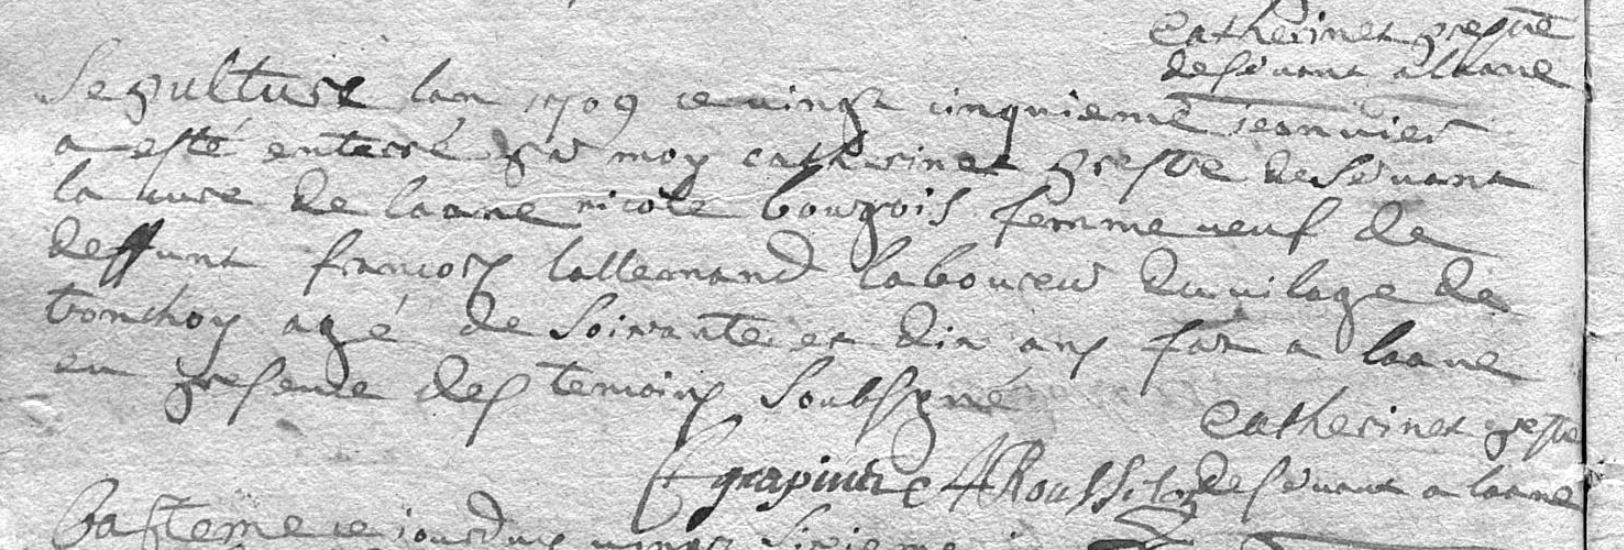 Catherinet prestre
deservant a laane
Sepulture lan 1709 ce vingt cinquieme jeanvier
a esté enterré par moy catherinet prestre deservant
la cure de laane nicole bourgois femme veuf de
deffunt francois lallemand laboureur du vilage de
tronchoy agé de soixante et dix ans fait a laane
en presence des temoins soubsigné
Catherinet prestre
deservant a laane
Bapteme ce jourduy vingt sixieme